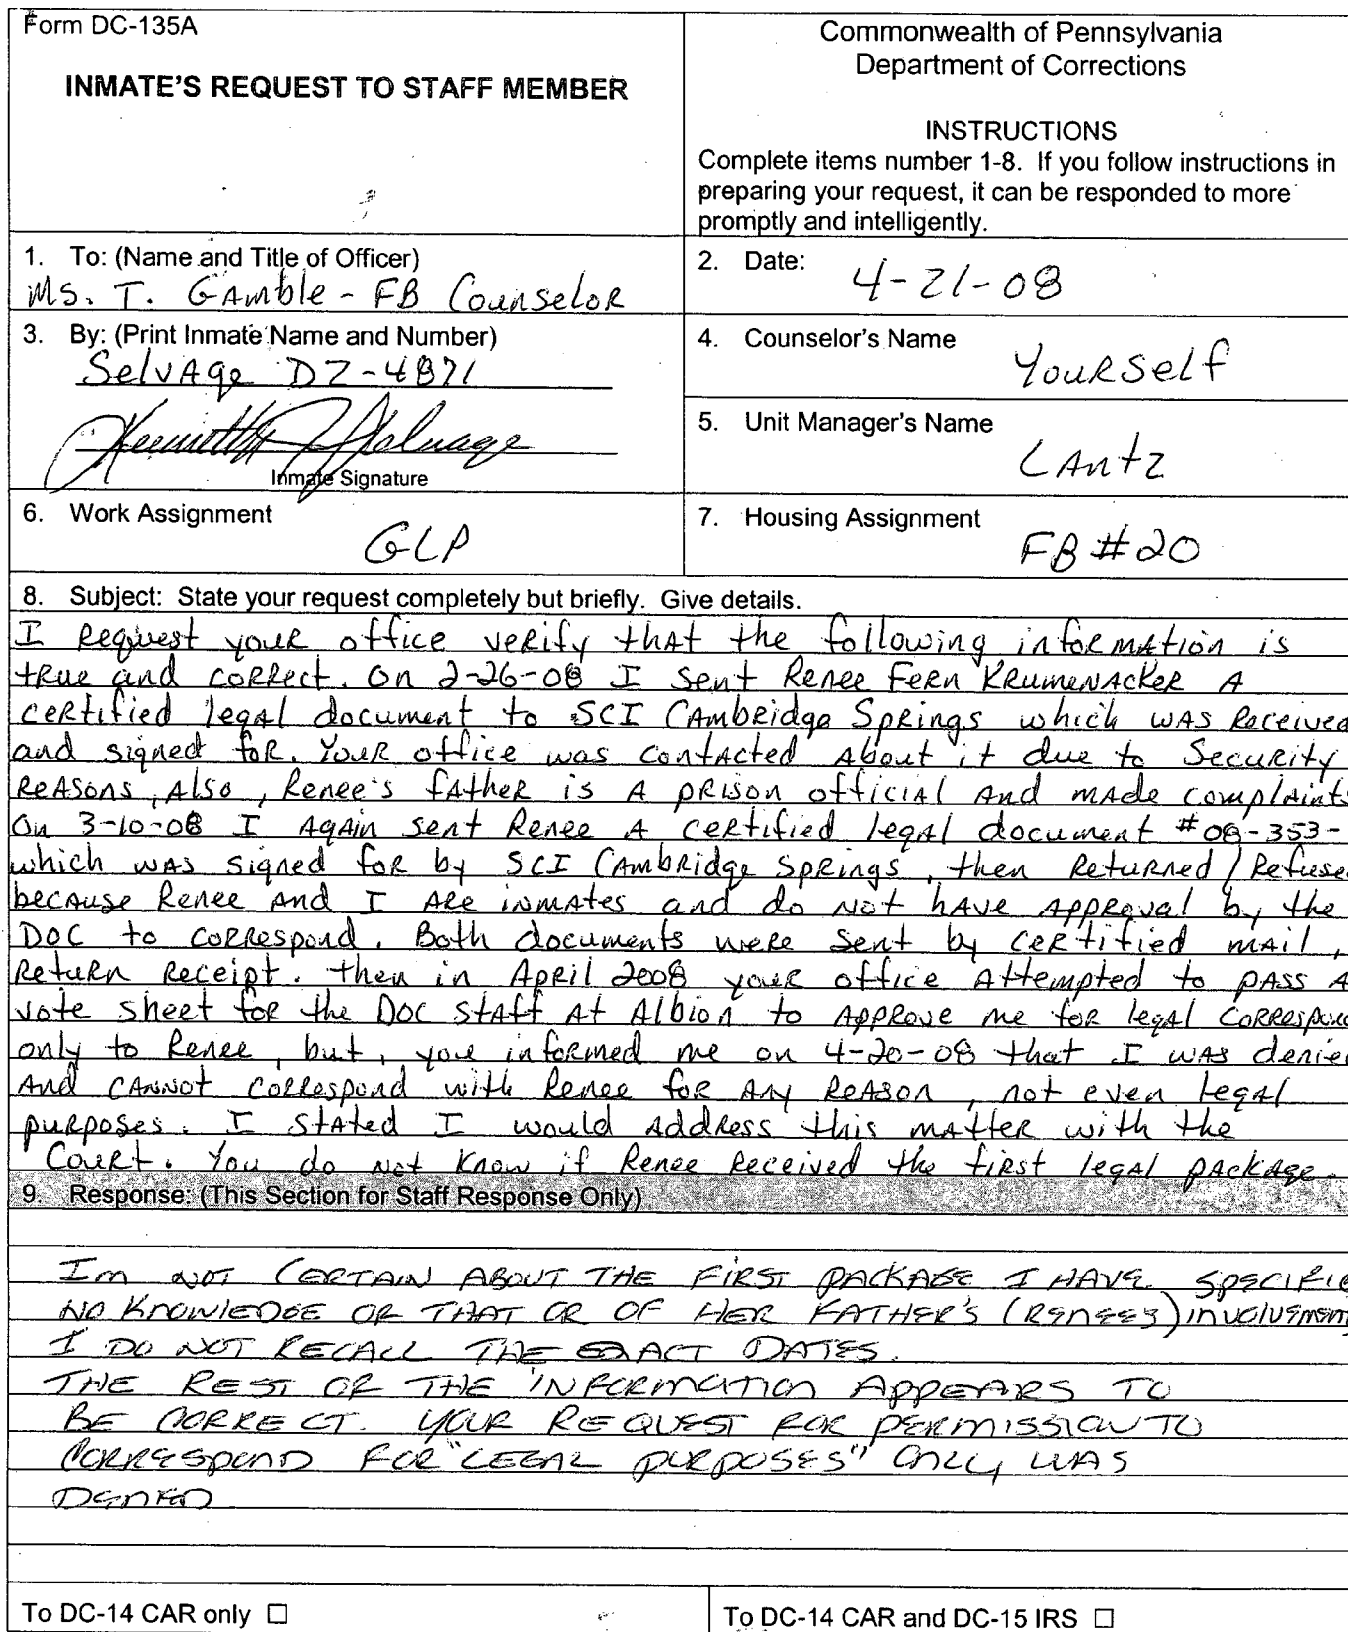 Form DC-135A
INMATE'S REQUEST TO STAFF MEMBER
Commonwealth of Pennsylvania
Department of Corrections
INSTRUCTIONS
Complete items number 1-8. If you follow instructions in
preparing your request, it can be responded to more
promptly and intelligently.
1. To: (Name and Title of Officer)
Ms. T. Gamble - FB Counselor
2. Date:
4-21-08
3. By: (Print Inmate Name and Number)
Selvage DZ-4871
Kenneth J Selvage
Inmate Signature
4. Counselor's Name
Yourself
5. Unit Manager's Name
Lantz
6. Work Assignment
GLP
7. Housing Assignment
FB #20
8. Subject: State your request completely but briefly. Give details.
I request your office verify that the following information is
true and correct. On 2-26-08 I sent Renee Fern Krumenacker a
certified legal document to SCI Cambridge Springs which was received
and signed for. Your office was contacted about it due to security
reasons, also, Renee's father is a prison official and made complaints
On 3-10-08 I again sent Renee a certified legal document #08-353-
which was signed for by SCI Cambridge Springs, then returned/refuse
because Renee and I are inmates and do not have approval by the
DOC to correspond. Both documents were sent by certified mail,
return receipt. then in April 2008 your office attempted to pass a
vote sheet for the DOC staff at Albion to approve me for legal correspond
only to Renee, but, you informed me on 4-20-08 that I was denie
and cannot correspond with Renee for any reason, not even legal
purposes. I stated I would address this matter with the
Court. You do not know if Renee received the first legal package.
9. Response: (This Section for Staff Response Only)
Im NOT CERTAIN ABOUT THE FIRST PACKAGE I HAVE SPECIFIC
NO KNOWLEDGE OF THAT OR OF HER FATHER'S (RENEES) INVOLVEMENT
I DO NOT RECALL THE EXACT DATES.
THE REST OF THE INFORMATION APPEARS TO
BE CORRECT. YOUR REQUEST FOR PERMISSION TO
CORRESPOND FOR "LEGAL PURPOSES" ONLY WAS
DENIED
To DC-14 CAR only ☐
To DC-14 CAR and DC-15 IRS ☐